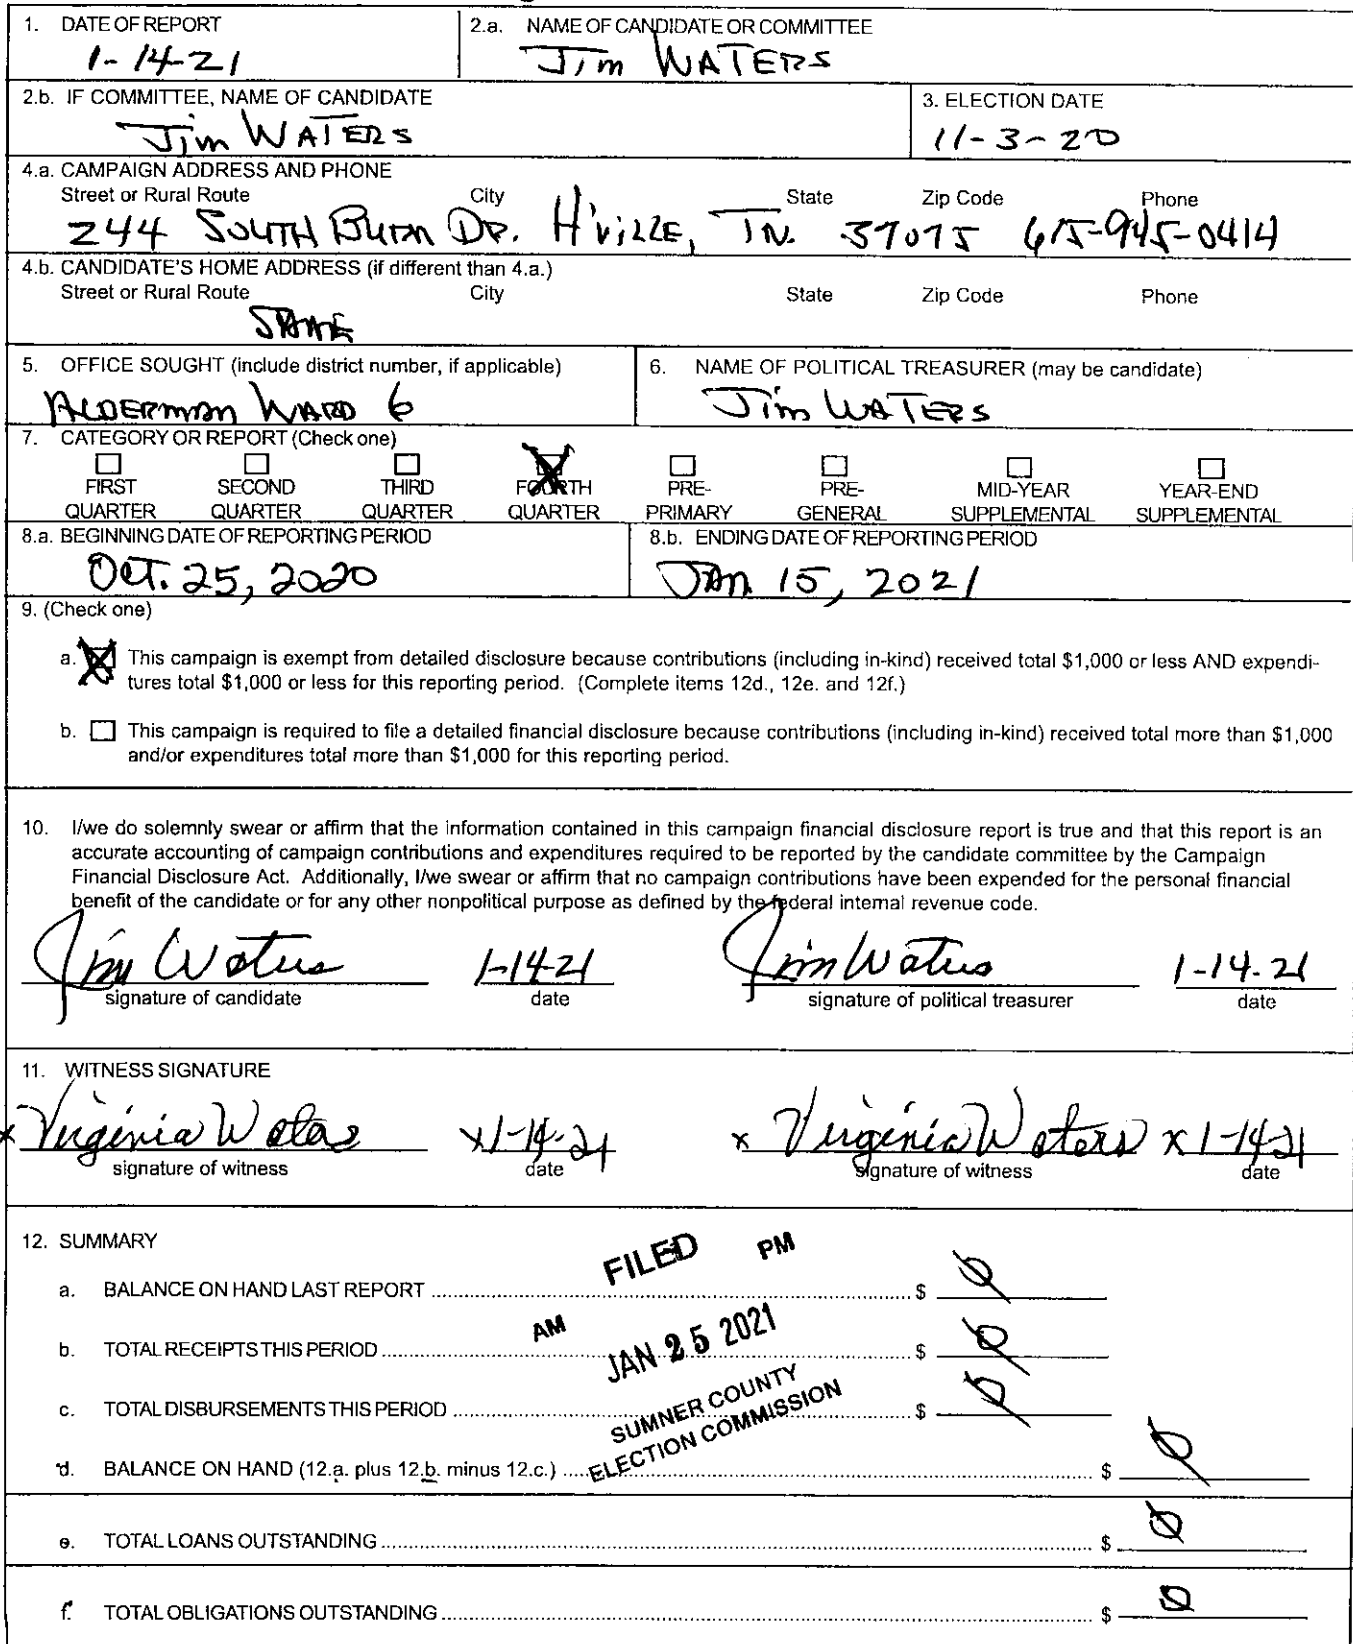 1. DATE OF REPORT
1-14-21
2.a. NAME OF CANDIDATE OR COMMITTEE
Jim WATERS
2.b. IF COMMITTEE, NAME OF CANDIDATE
Jim WATERS
3. ELECTION DATE
11-3-20
4.a. CAMPAIGN ADDRESS AND PHONE
Street or Rural Route City State Zip Code Phone
244 SOUTH BURN DR. H'VILLE, TN. 37075 615-945-0414
4.b. CANDIDATE'S HOME ADDRESS (if different than 4.a.)
Street or Rural Route City State Zip Code Phone
SAME
5. OFFICE SOUGHT (include district number, if applicable)
ALDERMAN WARD 6
6. NAME OF POLITICAL TREASURER (may be candidate)
Jim WATERS
7. CATEGORY OR REPORT (Check one)
FIRST SECOND THIRD FOURTH PRE- PRE- MID-YEAR YEAR-END
QUARTER QUARTER QUARTER QUARTER PRIMARY GENERAL SUPPLEMENTAL SUPPLEMENTAL
8.a. BEGINNING DATE OF REPORTING PERIOD
OCT. 25, 2020
8.b. ENDING DATE OF REPORTING PERIOD
JAN. 15, 2021
9. (Check one)
a. This campaign is exempt from detailed disclosure because contributions (including in-kind) received total $1,000 or less AND expendi-
tures total $1,000 or less for this reporting period. (Complete items 12d., 12e. and 12f.)
b. This campaign is required to file a detailed financial disclosure because contributions (including in-kind) received total more than $1,000
and/or expenditures total more than $1,000 for this reporting period.
10. I/we do solemnly swear or affirm that the information contained in this campaign financial disclosure report is true and that this report is an
accurate accounting of campaign contributions and expenditures required to be reported by the candidate committee by the Campaign
Financial Disclosure Act. Additionally, I/we swear or affirm that no campaign contributions have been expended for the personal financial
benefit of the candidate or for any other nonpolitical purpose as defined by the federal internal revenue code.
Jim Waters 1-14-21 Jim Waters 1-14-21
signature of candidate date signature of political treasurer date
11. WITNESS SIGNATURE
x Virginia Waters x 1-14-21 x Virginia Waters x 1-14-21
signature of witness date signature of witness date
12. SUMMARY
FILED PM
a. BALANCE ON HAND LAST REPORT $ 0
AM
JAN 25 2021
b. TOTAL RECEIPTS THIS PERIOD $ 0
SUMNER COUNTY
c. TOTAL DISBURSEMENTS THIS PERIOD $ 0
ELECTION COMMISSION
d. BALANCE ON HAND (12.a. plus 12.b. minus 12.c.) $ 0
e. TOTAL LOANS OUTSTANDING $ 0
f. TOTAL OBLIGATIONS OUTSTANDING $ 0